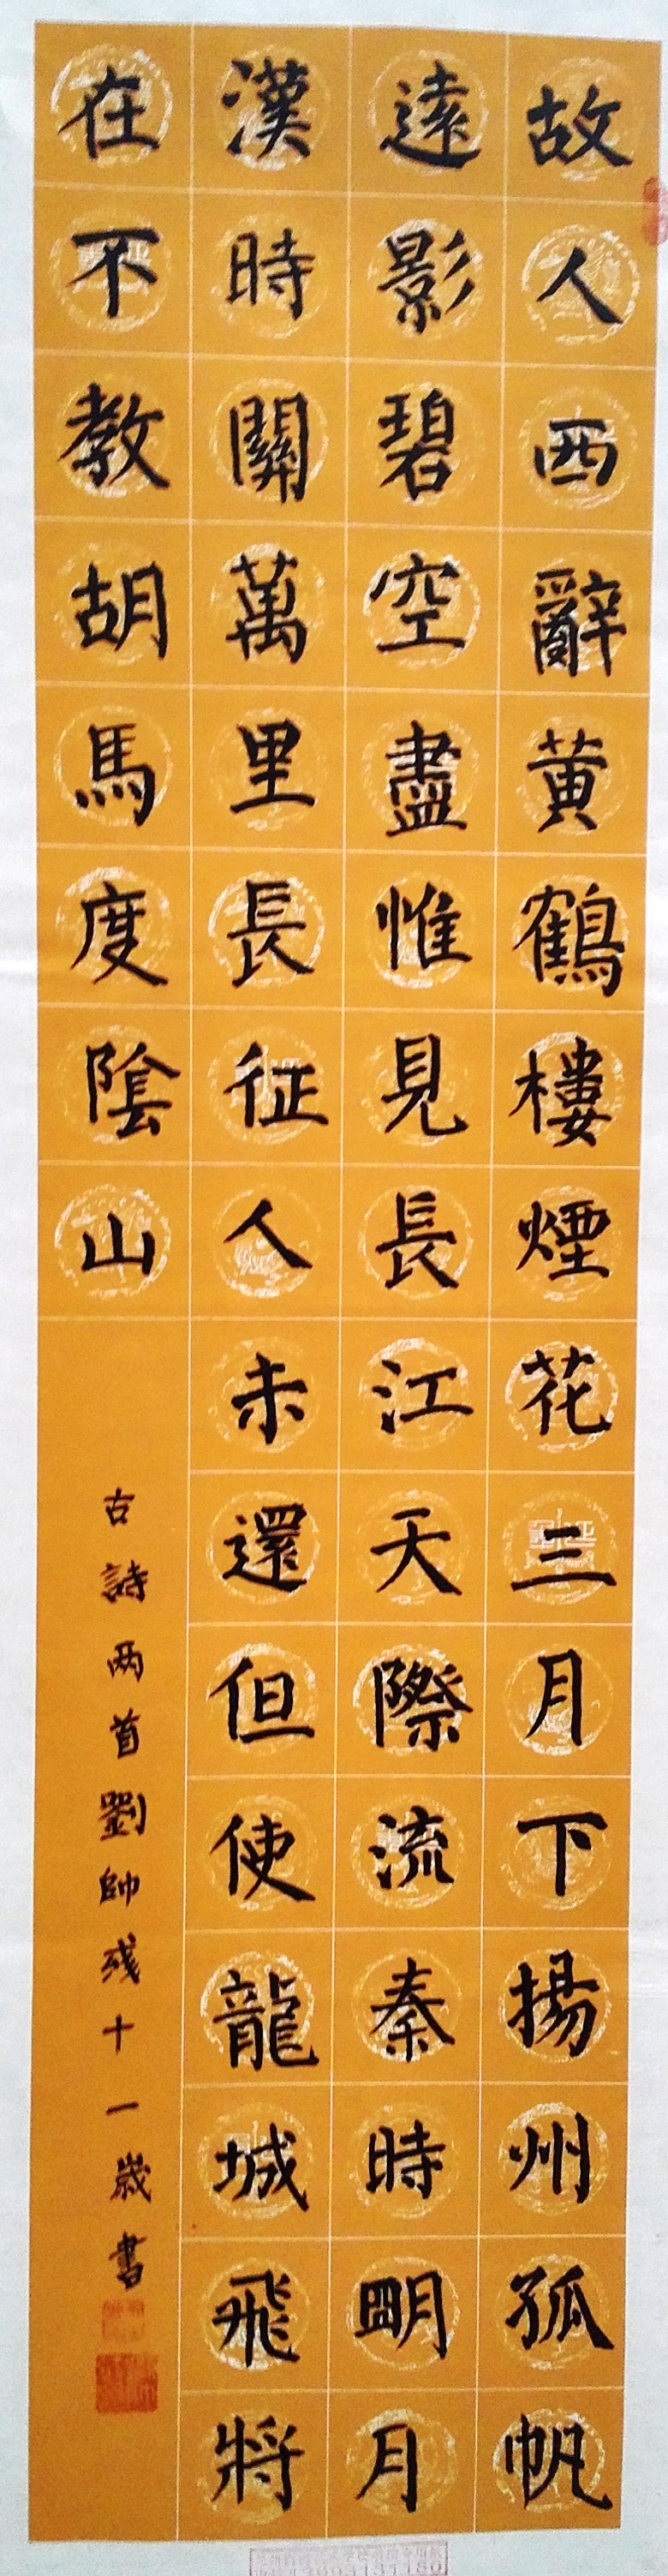 故人西辭黄鶴樓煙花三月下揚州孤帆
遠影碧空盡惟見長江天際流秦時明月
漢時關萬里長征人未還但使龍城飛將
在不教胡馬度陰山
古詩两首劉帥殘十一歲書